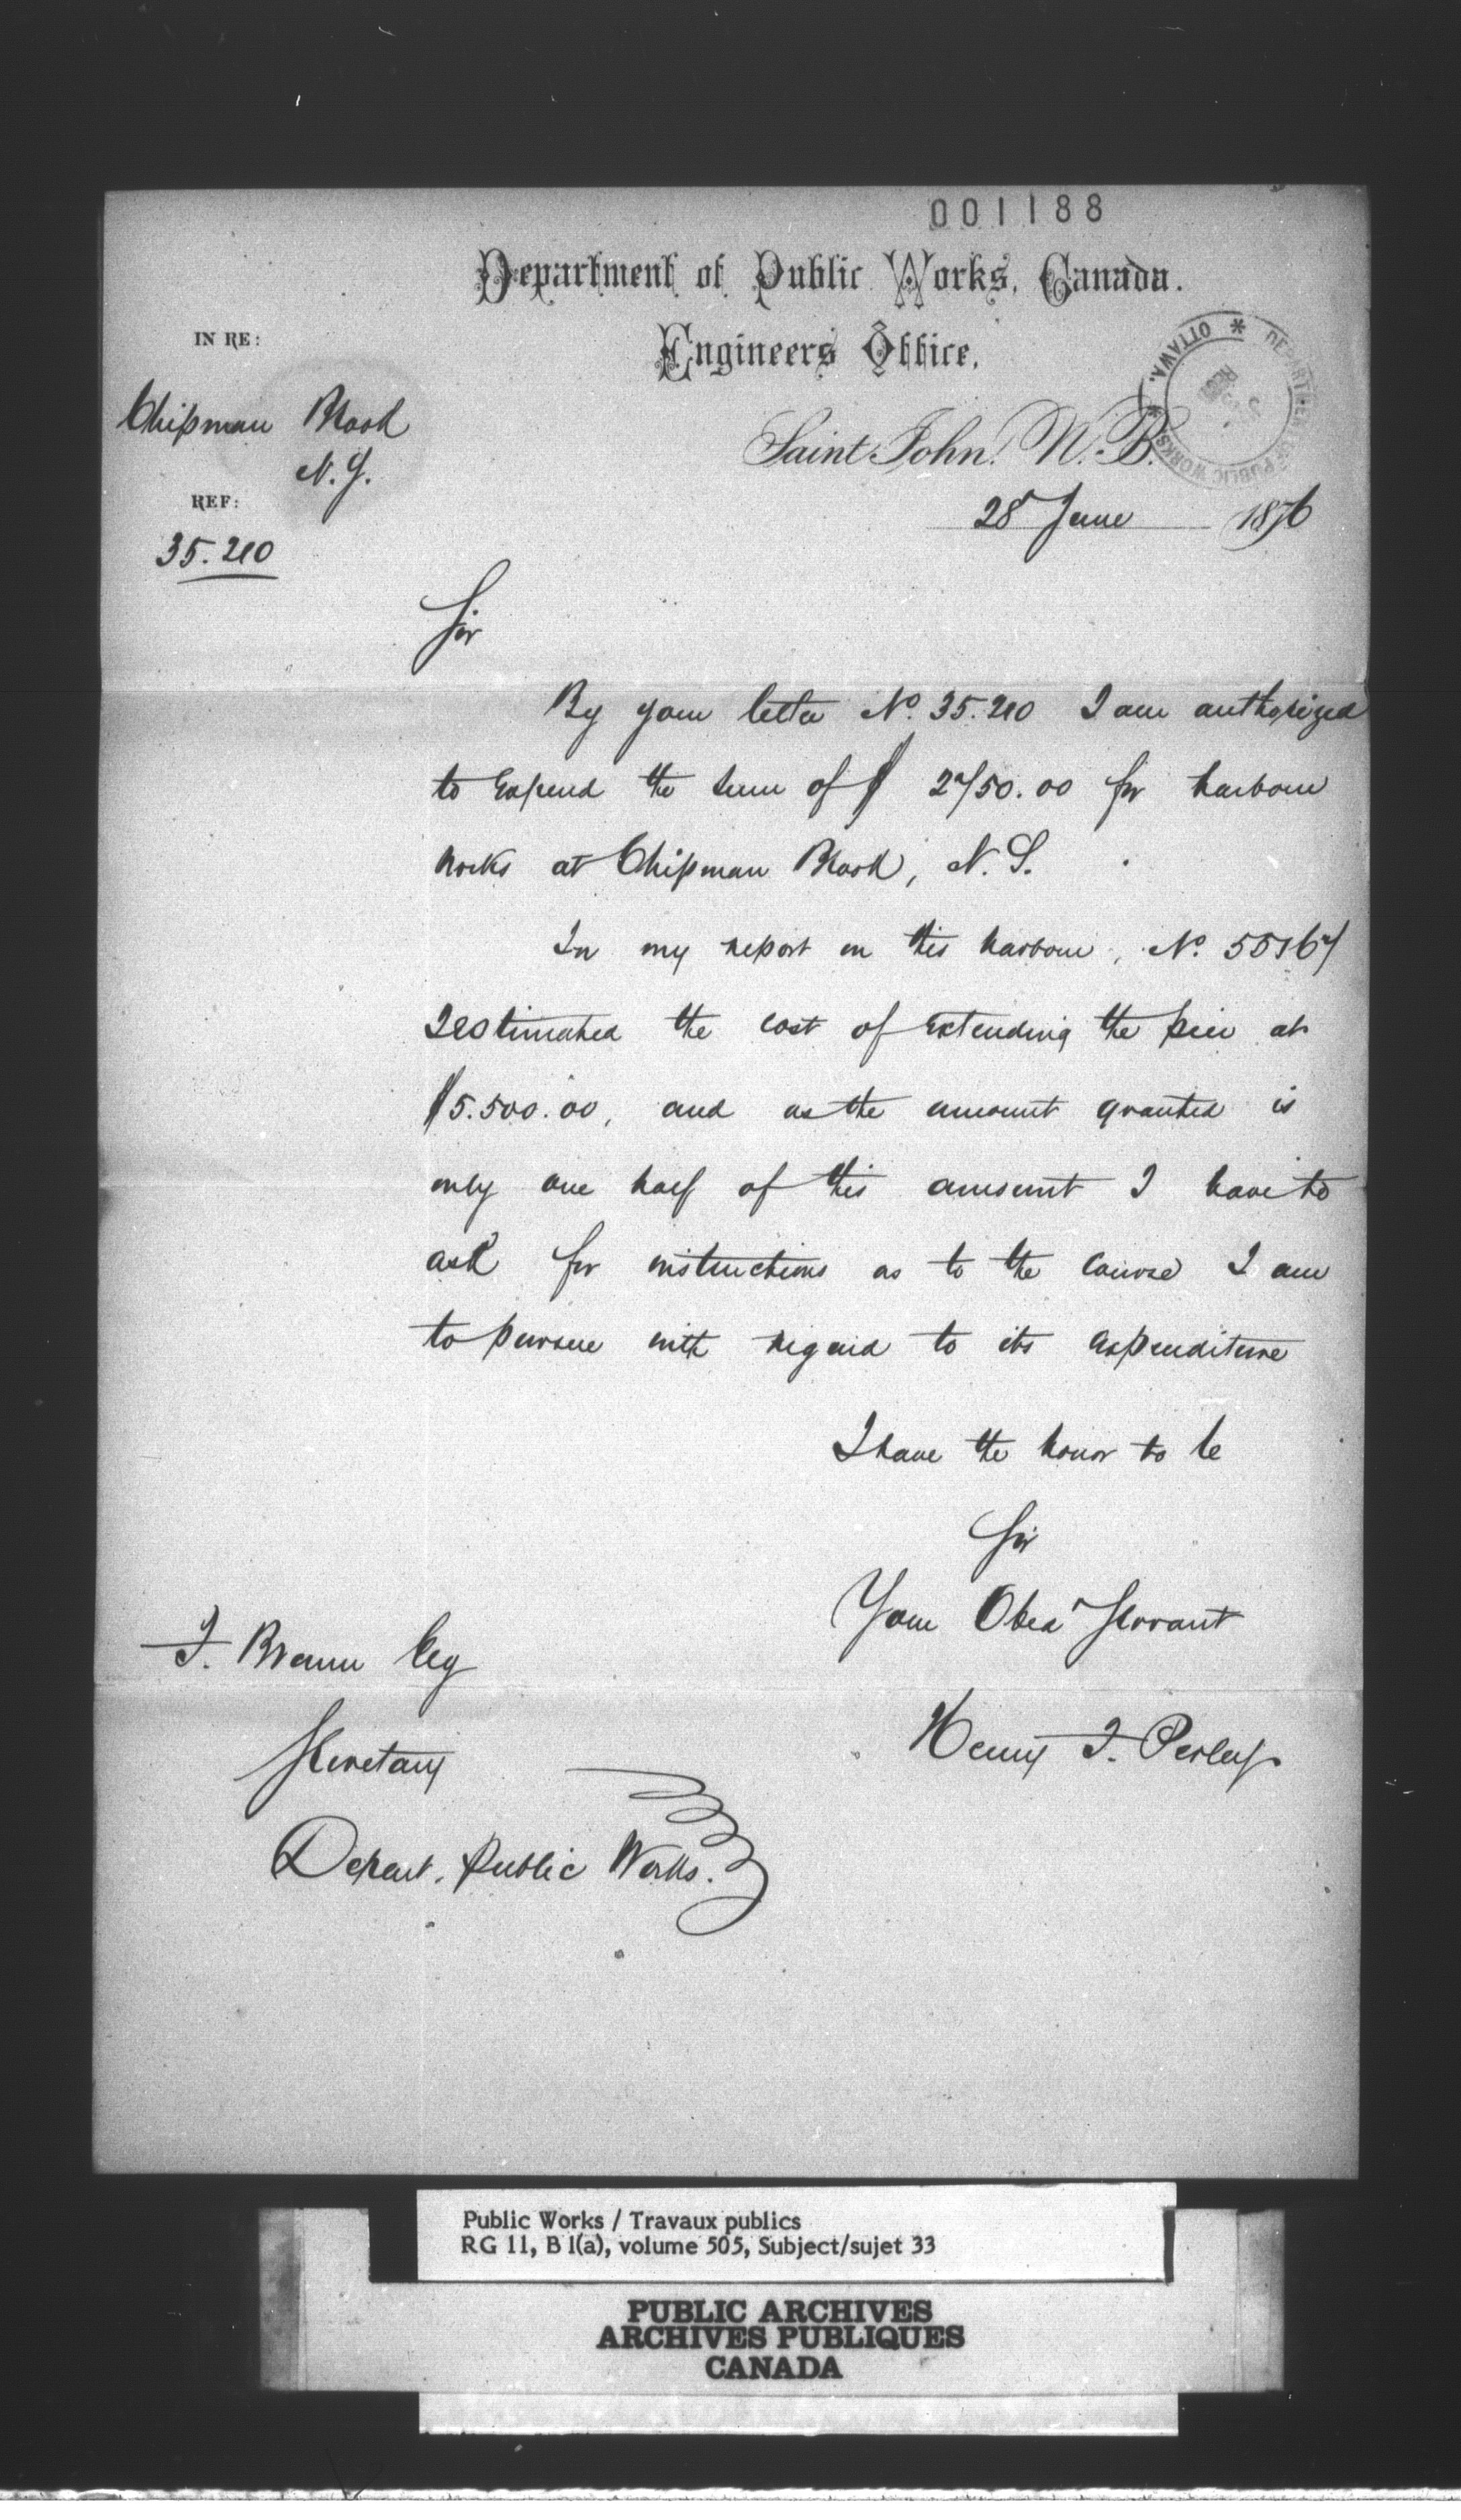 001188
Department of Public Works, Canada.
Engineers Office,
IN RE:
Chipman Brook
N.S.
REF:
35.210
OTTAWA. * DEPARTMENT OF PUBLIC WORKS *
Saint John, N.B.
28 June 1876
Sir
By your letter No. 35.210 I am authorized
to expend the sum of $ 2750.00 for harbour
works at Chipman Brook, N.S.
In my report on this harbour, No. 55167
I estimated the cost of extending the pier at
$5.500.00, and as the amount granted is
only one half of this amount I have to
ask for instructions as to the course I am
to pursue with regard to its expenditure
I have the honor to be
Sir
Your Obed Servant
Henry F. Perley
F. Braun Esq
Secretary
Depart. Public Works.
Public Works / Travaux publics
RG 11, B 1(a), volume 505, Subject/sujet 33
PUBLIC ARCHIVES
ARCHIVES PUBLIQUES
CANADA